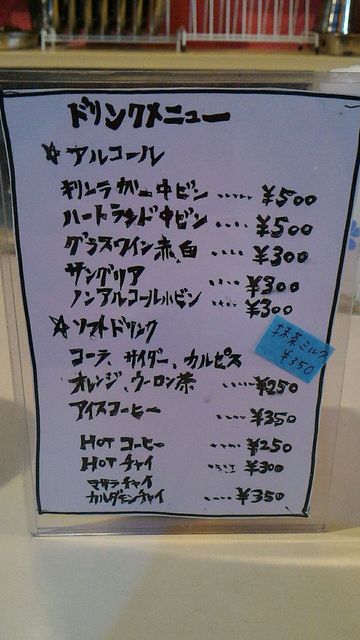 ドリンクメニュー
☆ アルコール
キリンラガー中ビン ...... ¥500
ハートランド中ビン .... ¥500
グラスワイン赤、白 .... ¥300
サングリア .... ¥300
ノンアルコール小ビン .... ¥300
☆ ソフトドリンク
抹茶ミルク
¥350
コーラ、サイダー、カルピス
オレンジ、ウーロン茶 ...... ¥250
アイスコーヒー ..... ¥350
HOT コーヒー ..... ¥250
HOT チャイ ..... ¥300
マサラチャイ
カルダモンチャイ .... ¥350